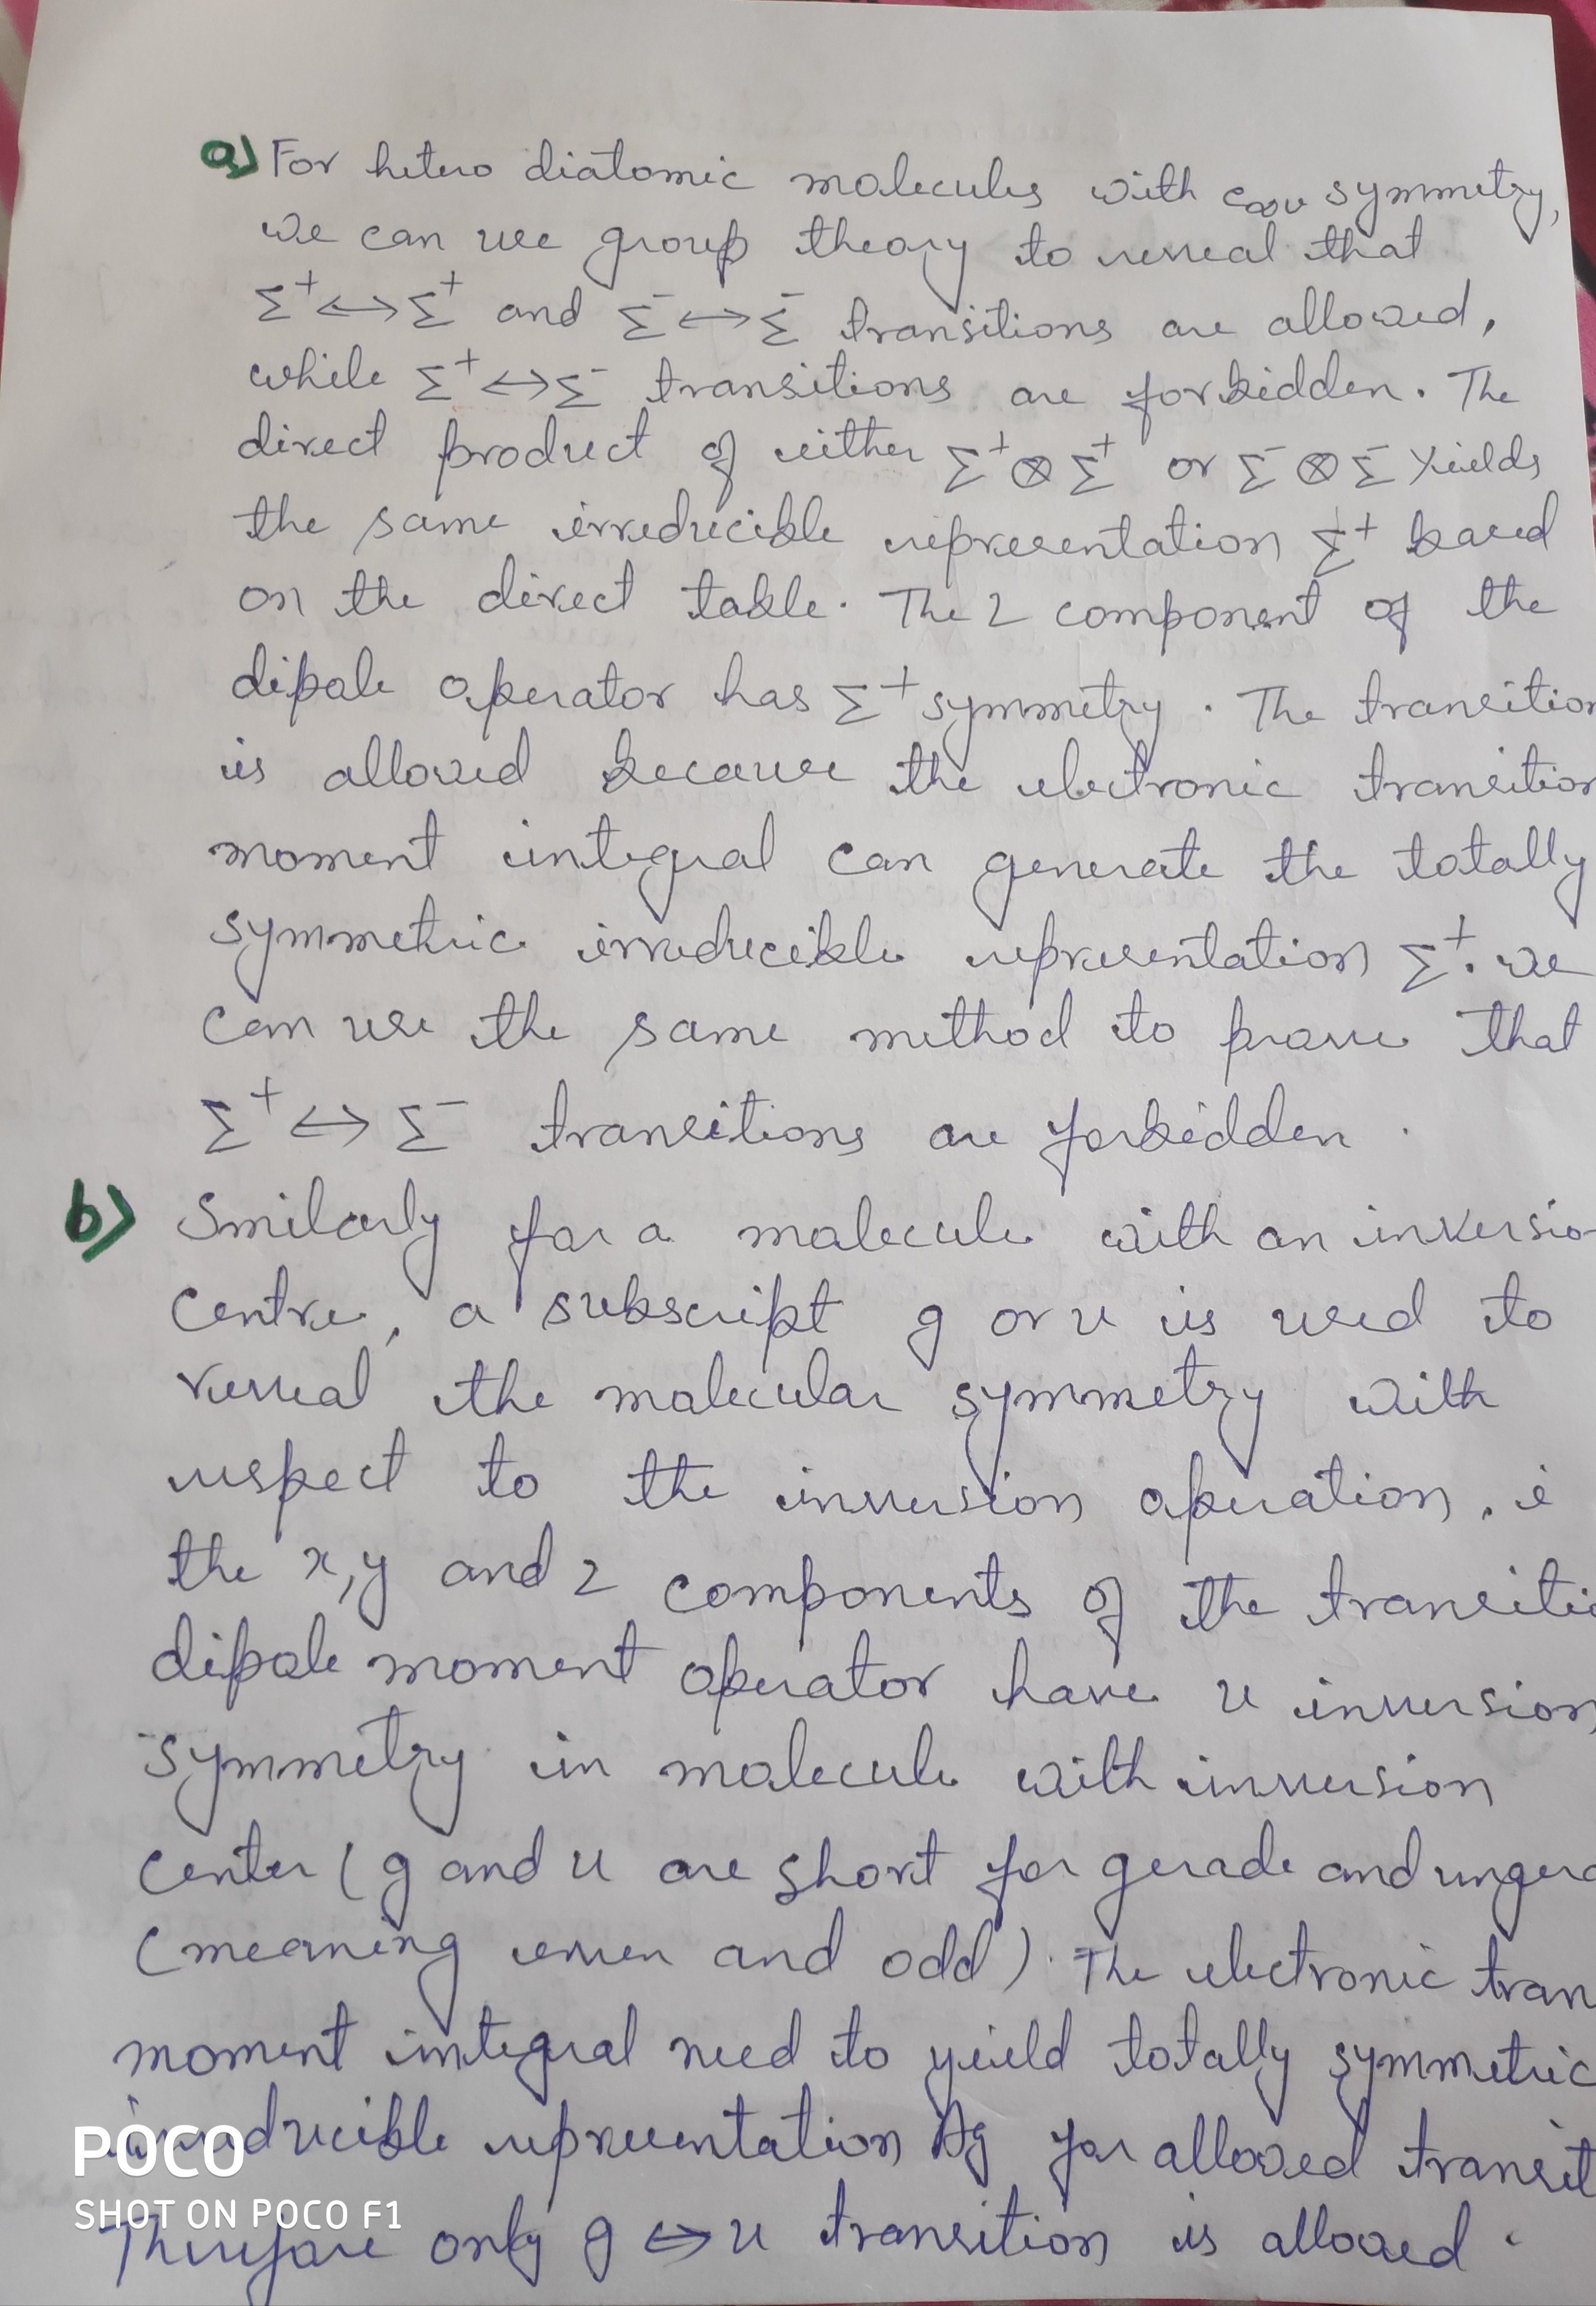 a) For hetero diatomic molecules with C∞v symmetry,
we can use group theory to reveal that
Σ⁺↔Σ⁺ and Σ⁻↔Σ⁻ transitions are allowed,
while Σ⁺↔Σ⁻ transitions are forbidden. The
direct product of either Σ⁺⊗Σ⁺ or Σ⁻⊗Σ⁻ yields
the same irreducible representation Σ⁺ based
on the direct table. The z component of the
dipole operator has Σ⁺ symmetry. The transition
is allowed because the electronic transition
moment integral can generate the totally
symmetric irreducible representation Σ⁺. we
can use the same method to prove that
Σ⁺↔Σ⁻ transitions are forbidden.
b) Smilarly for a molecule with an inversio
centre, a subscript g or u is used to
reveal the molecular symmetry with
respect to the inversion operation, i
the x,y and z components of the transiti
dipole moment operator have u inversion
symmetry in molecule with inversion
center (g and u are short for gerade and ungera
(meaning even and odd). The electronic tran
moment integral need to yield totally symmetric
irreducible representation Ag for allowed transit
Therefore only g↔u transition is allowed.
POCO
SHOT ON POCO F1